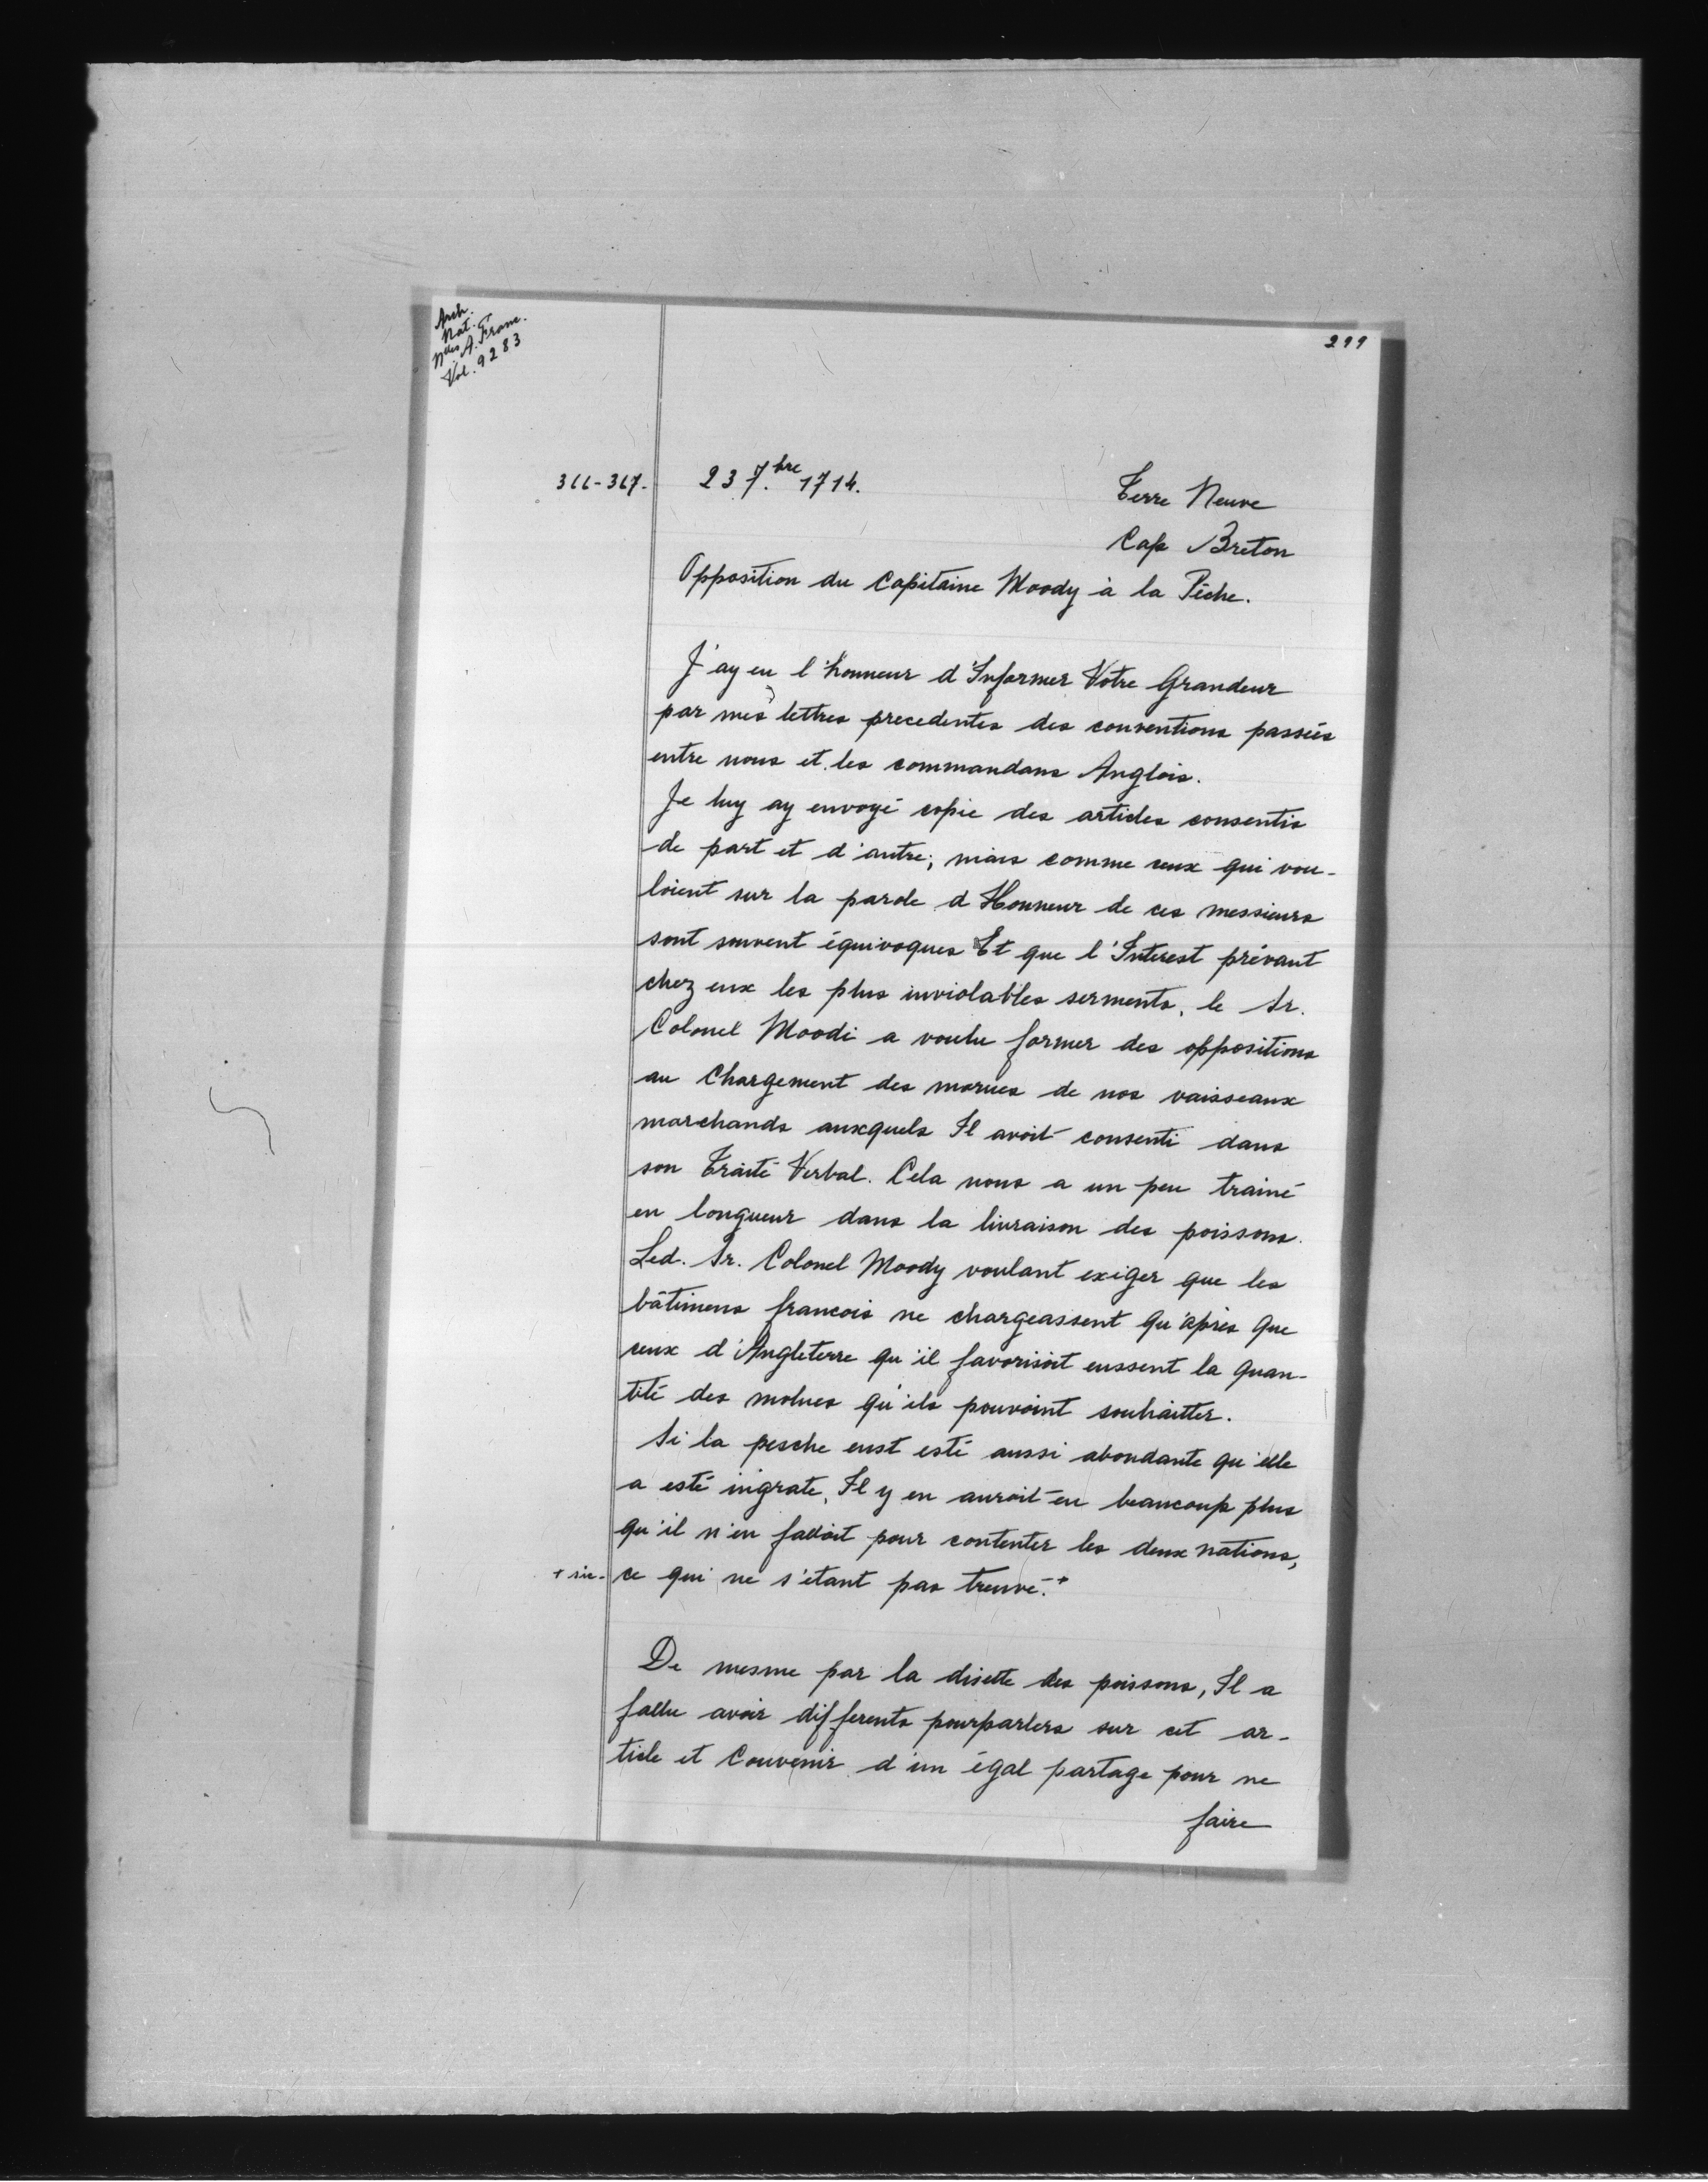 Arch.
Nat.
Nlles A. Franc.
Vol. 9283
299
366-367.
23 7.bre 1714.
Terre Neuve
Cap Breton
Opposition du Capitaine Moody à la Pêche.
J'ay eu l'honneur d'Informer Votre Grandeur
par mes lettres precedentes des conventions passées
entre nous et les commandans Anglois.
Je luy ay envoyé copie des articles consentis
de part et d'autre; mais comme ceux qui vou-
loient sur la parole d'Honneur de ces messieurs
sont souvent équivoques Et que l'Interest prévaut
chez eux les plus inviolables serments, le Sr.
Colonel Moodi a voulu former des oppositions
au Chargement des morues de nos vaisseaux
marchands auxquels Il avoit consenti dans
son Traité Verbal. Cela nous a un peu trainé
en longueur dans la livraison des poissons.
Led. Sr. Colonel Moody voulant exiger que les
bâtimens francois ne chargeassent qu'après que
ceux d'Angleterre qu'il favorisoit eussent la quan-
tité des molues qu'ils pouvoint souhaitter.
Si la pesche eust esté aussi abondante qu'elle
a esté ingrate, Il y en auroit eu beaucoup plus
qu'il n'en falloit pour contenter les deux nations,
+ sic. ce qui ne s'étant pas treuvé.+
De mesme par la disette des poissons, Il a
fallu avoir differents pourparlers sur cet ar-
ticle et Convenir d'un égal partage pour ne
faire